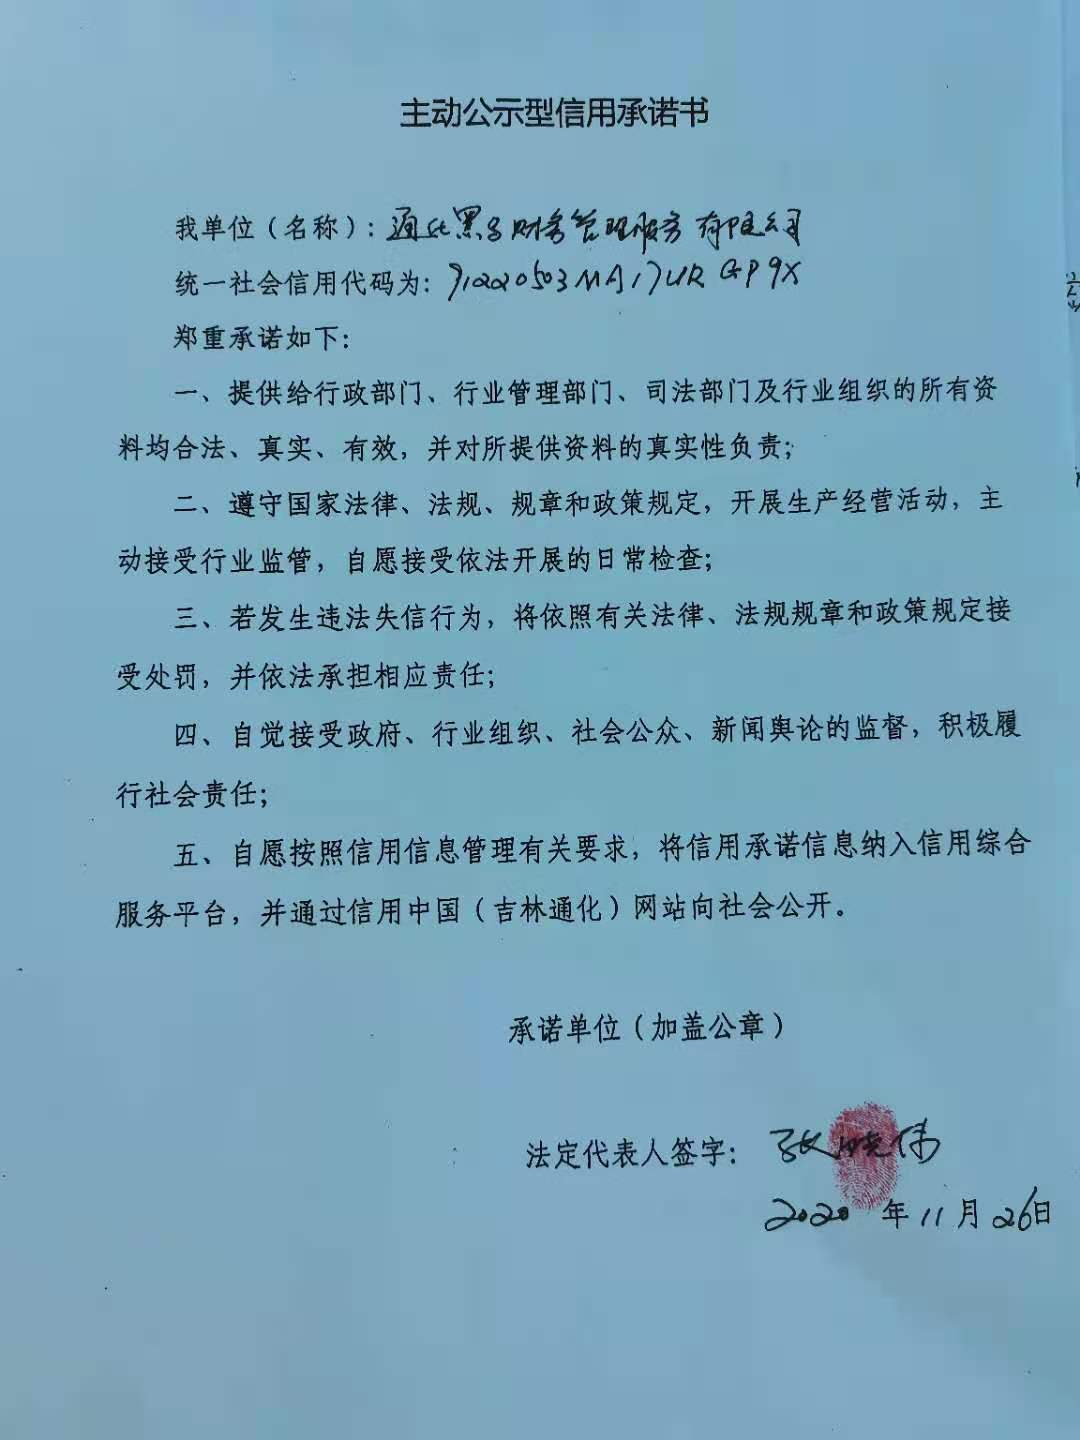 主动公示型信用承诺书
我单位（名称）：通化黑子财务管理服务有限公司
统一社会信用代码为：91220503MA17URGP9X
郑重承诺如下：
一、提供给行政部门、行业管理部门、司法部门及行业组织的所有资
料均合法、真实、有效，并对所提供资料的真实性负责；
二、遵守国家法律、法规、规章和政策规定，开展生产经营活动，主
动接受行业监管，自愿接受依法开展的日常检查；
三、若发生违法失信行为，将依照有关法律、法规规章和政策规定接
受处罚，并依法承担相应责任；
四、自觉接受政府、行业组织、社会公众、新闻舆论的监督，积极履
行社会责任；
五、自愿按照信用信息管理有关要求，将信用承诺信息纳入信用综合
服务平台，并通过信用中国（吉林通化）网站向社会公开。
承诺单位（加盖公章）
法定代表人签字：张晓伟
2020年11月26日